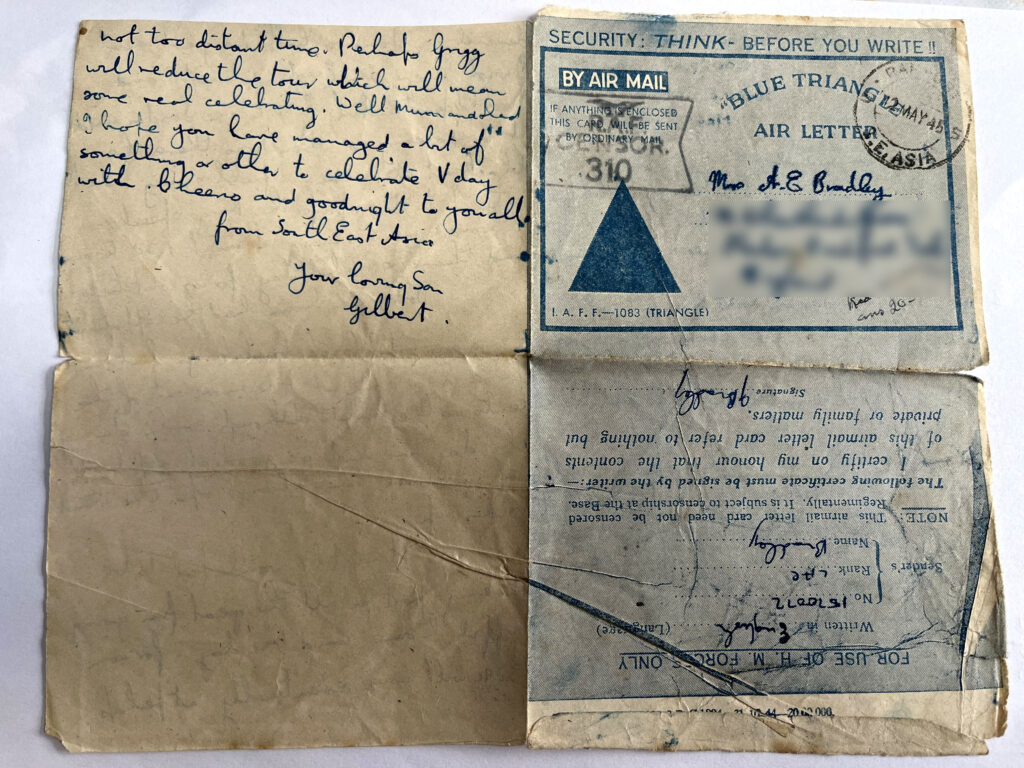 not too distant time. Perhaps Grigg
will reduce the tour which will mean
some real celebrating. Well Mum and dad
I hope you have managed a bit of
something or other to celebrate V day
with. Cheerio and goodnight to you all
from South East Asia
Your loving Son
Gilbert.
SECURITY: THINK - BEFORE YOU WRITE !!
BY AIR MAIL
"BLUE TRIANGLE"
AIR LETTER
IF ANYTHING IS ENCLOSED
THIS CARD WILL BE SENT
BY ORDINARY MAIL
R.A.F.
CENSOR.
310
12 MAY 45
S.E. ASIA
Mrs A.E Bradley
I. A. F. F.—1083 (TRIANGLE)
ans 20-
FOR USE OF H. M. FORCES ONLY
Written in English (Language)
Sender's
No. 1570072
Rank. LAC
Name. Bradley
NOTE: This airmail letter card need not be censored
Regimentally. It is subject to censorship at the Base.
The following certificate must be signed by the writer:—
I certify on my honour that the contents
of this airmail letter card refer to nothing but
private or family matters.
Signature GBradley